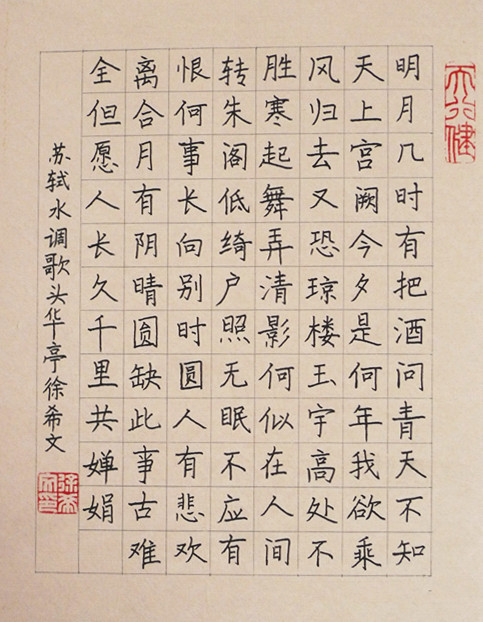 天行健
明月几时有把酒问青天不知
天上宫阙今夕是何年我欲乘
风归去又恐琼楼玉宇高处不
胜寒起舞弄清影何似在人间
转朱阁低绮户照无眠不应有
恨何事长向别时圆人有悲欢
离合月有阴晴圆缺此事古难
全但愿人长久千里共婵娟
苏轼水调歌头华亭徐希文
徐希文印